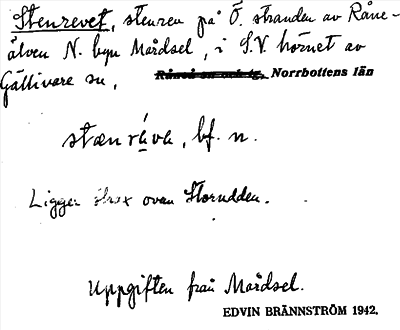 Stenrevet, stenren på Ö. stranden av Råne-
älven N. byn Mårdsel, i S.V. hörnet av
Gällivare sn, Råneå sn och tg, Norrbottens län
stænrä́va, bf. n.
Ligger strax ovan Storudden.
Uppgiften från Mårdsel.
EDVIN BRÄNNSTRÖM 1942.